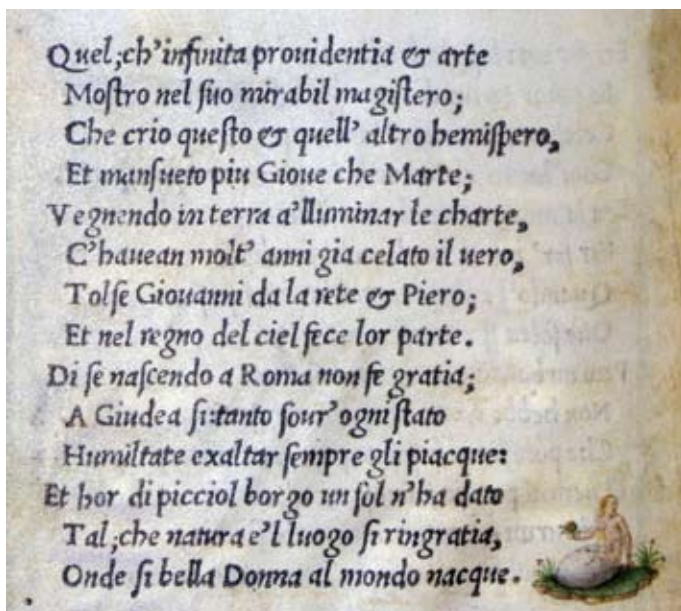 Quel;ch'infinita prouidentia & arte
Moſtro nel ſuo mirabil magiſtero;
Che crio queſto & quell' altro hemiſpero,
Et manſueto piu Gioue che Marte;
Vegnendo in terra a'lluminar le charte,
C'hauean molt' anni gia celato il uero,
Tolſe Giouanni da la rete & Piero;
Et nel regno del ciel fece lor parte.
Di ſe naſcendo a Roma non fe gratia;
A Giudea ſi:tanto ſour' ogni ſtato
Humiltate exaltar ſempre gli piacque:
Et hor di picciol borgo un ſol n'ha dato
Tal;che natura e'l luogo ſi ringratia,
Onde ſi bella Donna al mondo nacque.